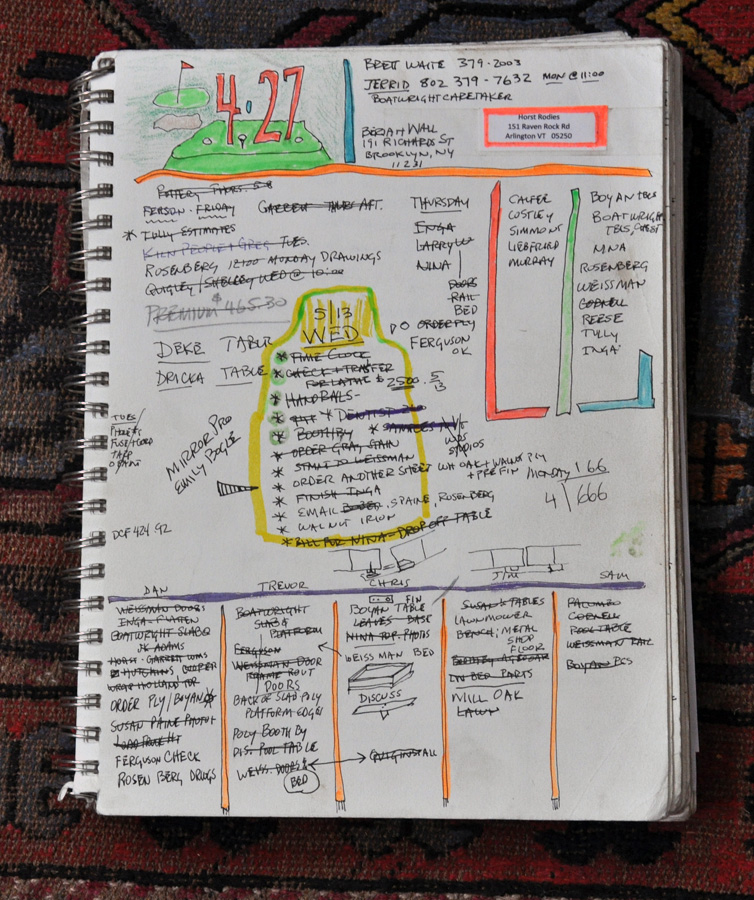 4·27
BRETT WHITE 379·2003
JERRID 802 379-7632 MON @ 11:00
BOATWRIGHT CARETAKER
Horst Rodies
151 Raven Rock Rd
Arlington VT 05250
WALL
191 RICHARDS ST
BROOKLYN, NY
11231
POTTERY THURS.
FERSON · FRIDAY GARRETT THURS AFT.
* TULLY ESTIMATES
KILN PEOPLE + GREG TUES.
ROSENBERG 12:00 MONDAY DRAWINGS
QUIGLEY / SHELLEY WED @ 10:00
PREMIUM $465.30
DEKE TABLE
DRICKA TABLE
THURSDAY
INGA
LARRY W
NINA
DOORS
RAIL
BED
DO ORDER PLY
FERGUSON
OK
CALFER
COSTLEY
SIMMONS
LIEBFRIED
MURRAY
BOYAN TBLS
BOATWRIGHT
TBLS,
NINA
ROSENBERG
WEISSMAN
CORNELL
REESE
TULLY
INGA
5/13
WED
* TIME CLOCK
* CHECK + TRANSFER
FOR LATHE $2500. 5/13
* HANDRAILS-
* DENTIST
* BOOTHBY *
* ORDER GRAY STAIN
* STAIN TO WEISSMAN
* ORDER ANOTHER SHEET WH OAK + WALNUT PLY
+ PREFIN
* FINISH INGA
* EMAIL BOZED, SPAINE, ROSENBERG
* WALNUT IRION
* BILL FOR NINA - DROP OFF TABLE
STUDIOS
TUES/
TAPP
MIRROR PRO
EMILY BOGLE
MONDAY 166
4/666
DCF 424.92
DAN
WEISMAN DOORS
INGA PLATEN
BOATWRIGHT SLABS
JK ADAMS
HORST · GARRETT WMS
HUTCHINS COOPER
WRAP HOLLAND TOP
ORDER PLY/BOYAN
SUSAN PAINE PHOTOS
LOAD TRUCK HT
FERGUSON CHECK
ROSENBERG DRWGS
TREVOR
BOATWRIGHT
SLAB &
PLATFORM
FERGUSON
WEISSMAN DOOR
FRAME ROUT
DOORS
BACK OF SLAB PLY
PLATFORM EDGES
POLY BOOTH BY
DIS. POOL TABLE
WEISS. DOORS &
BED
CHRIS
FIN
BOYAN TABLE
LEAVES BASE
NINA TOP. PHOTOS
WEISSMAN BED
DISCUSS
QUIG INSTALL
JIM
SUSAN'S TABLES
LAWNMOWER
BENCH; METAL
SHOP
FLOOR
BED PARTS
MILL OAK
LAWN
SAM
PALOMBO
CORNELL
POOL TABLE
WEISSMAN RAIL
BOYAN PCS